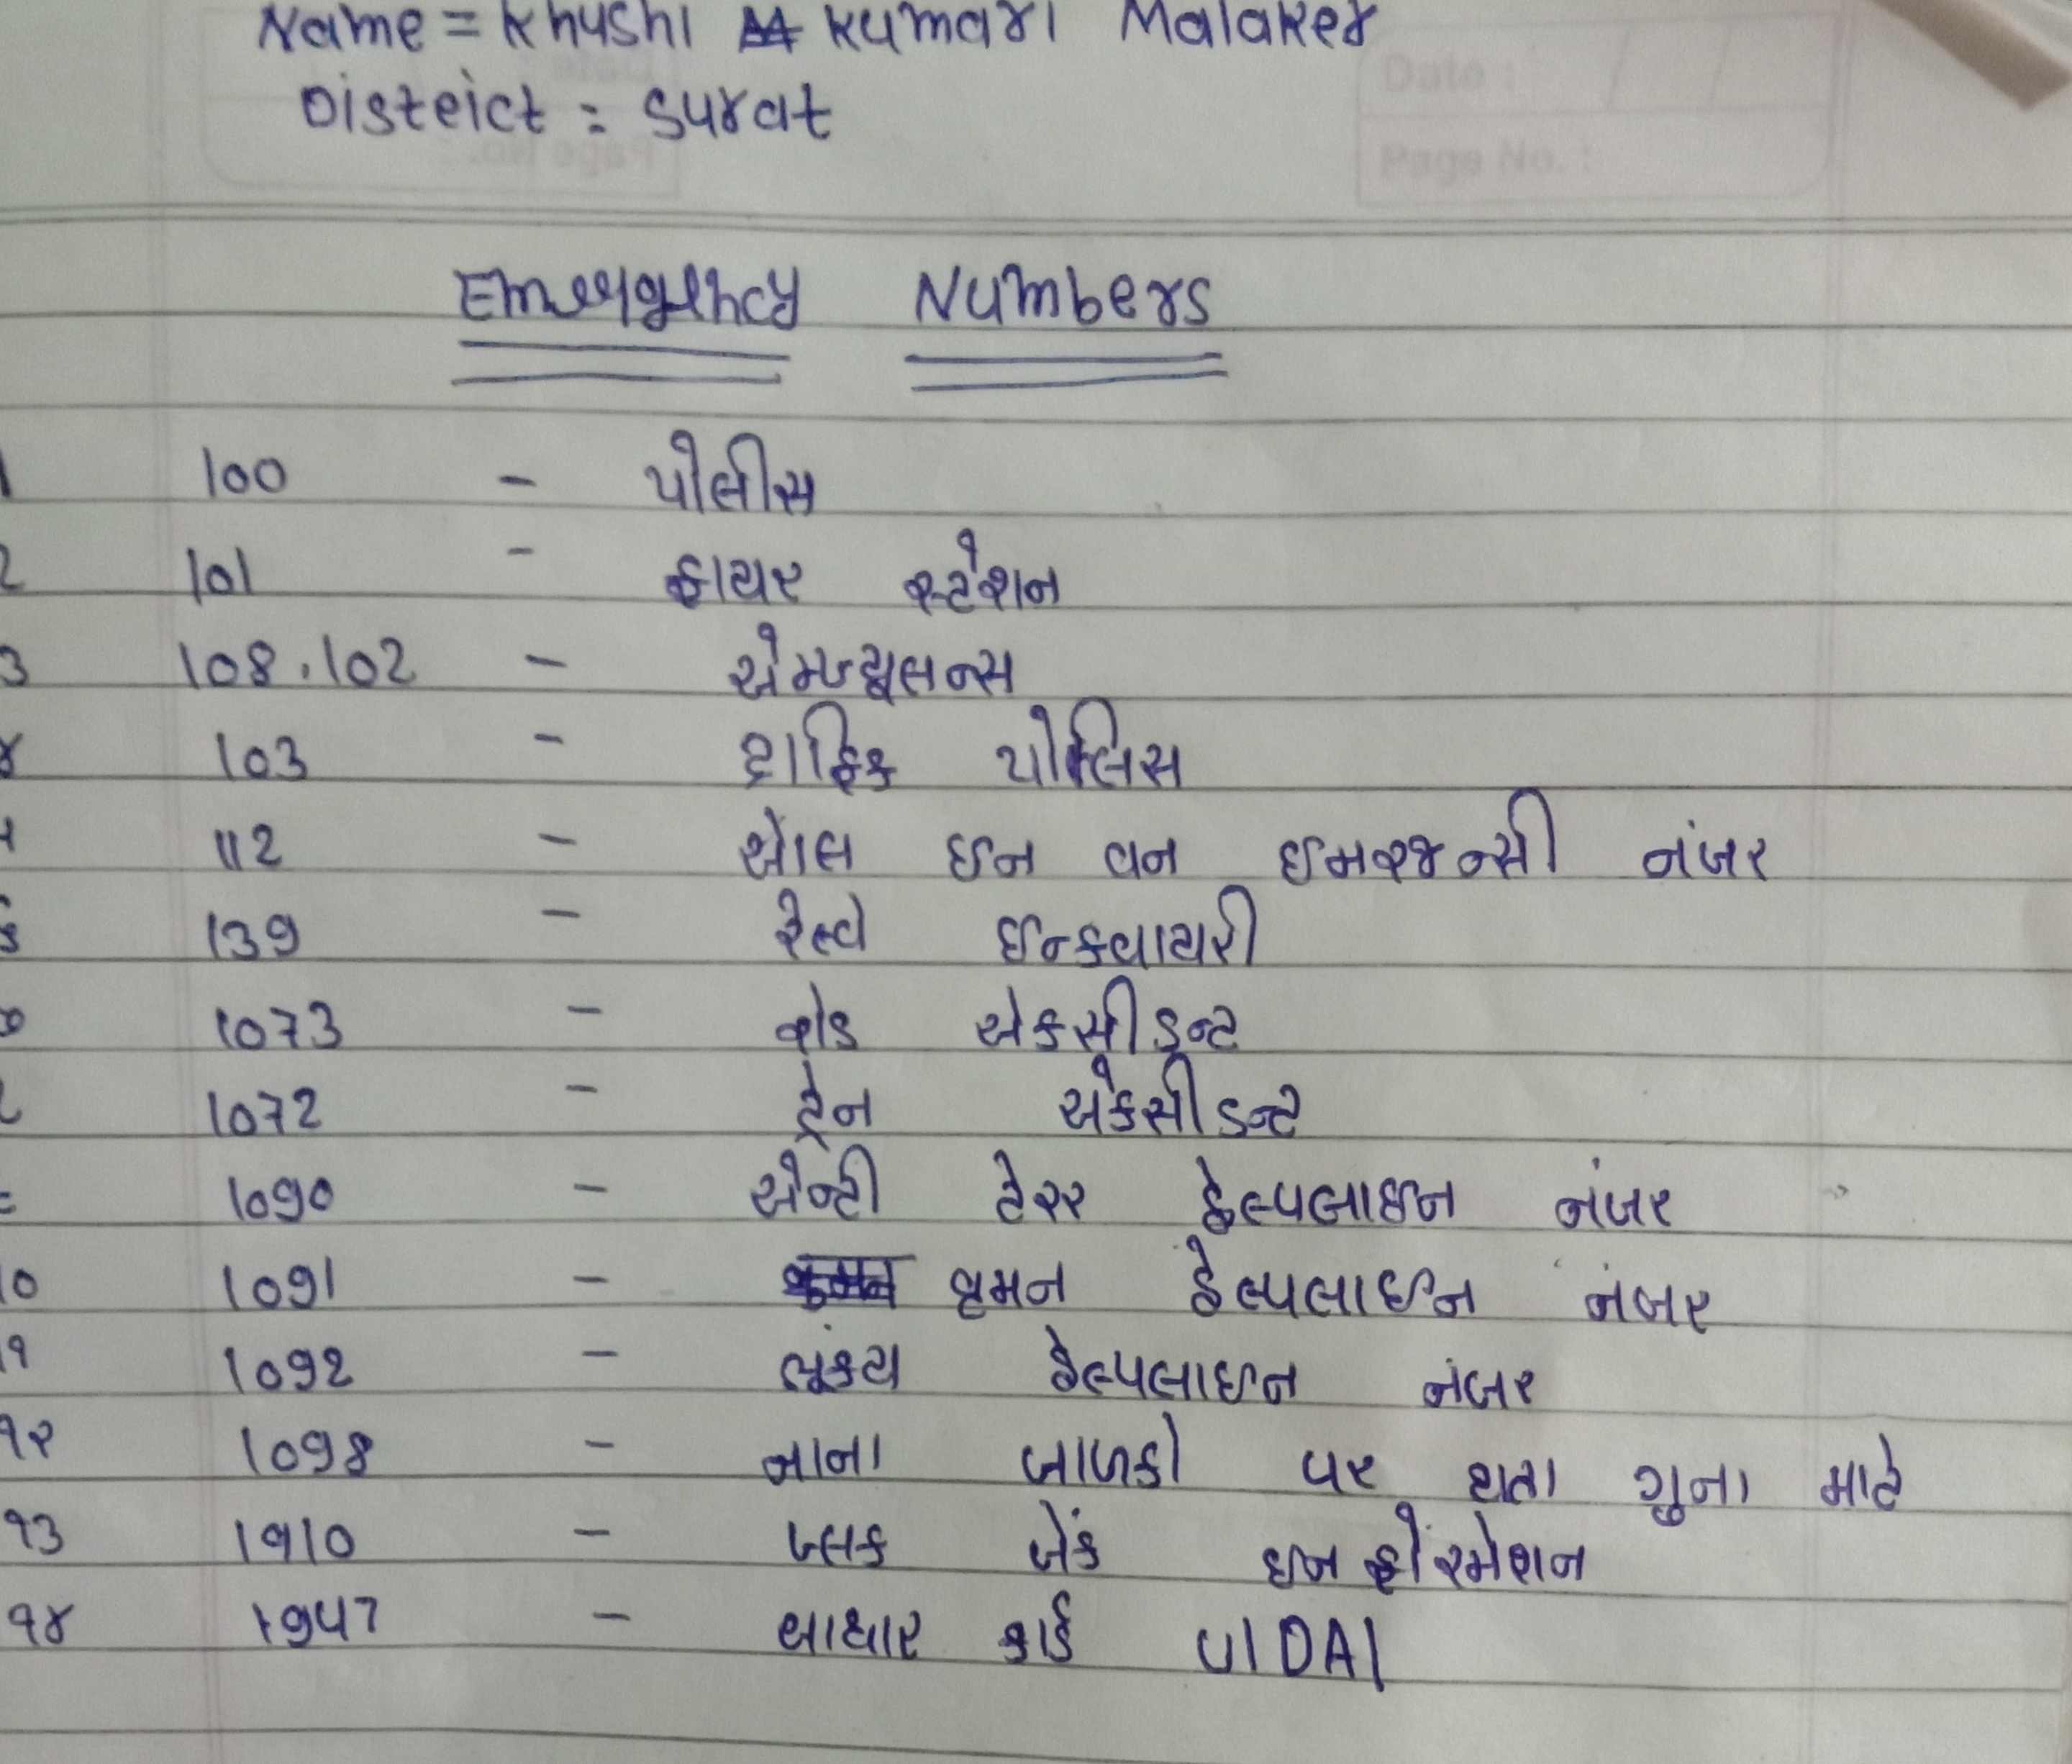 Name = Khushi Kumari Malaker
Disteict : Surat
Date :
Page No. :
Emergency Numbers
1 100 - પોલીસ
2 101 - ફાયર સ્ટેશન
3 108, 102 - એમ્બ્યુલન્સ
૪ 103 - ટ્રાફિક પોલિસ
૫ 112 - ઓલ ઇન વન ઇમરજન્સી નંબર
૬ 139 - રેલ્વે ઇન્કવાયરી
૭ 1073 - રોડ એકસીડન્ટ
૮ 1072 - ટ્રેન એકસીડન્ટ
૯ 1090 - એન્ટી ટેરર હેલ્પલાઇન નંબર
10 1091 - વુમન હેલ્પલાઇન નંબર
૧૧ 1092 - ભૂકંપ હેલ્પલાઇન નંબર
૧૨ 1098 - નાના બાળકો પર થતા ગુના માટે
૧૩ 1910 - બ્લક બેંક ઇન ફોરમેશન
૧૪ 1947 - આધાર કાર્ડ UIDAI